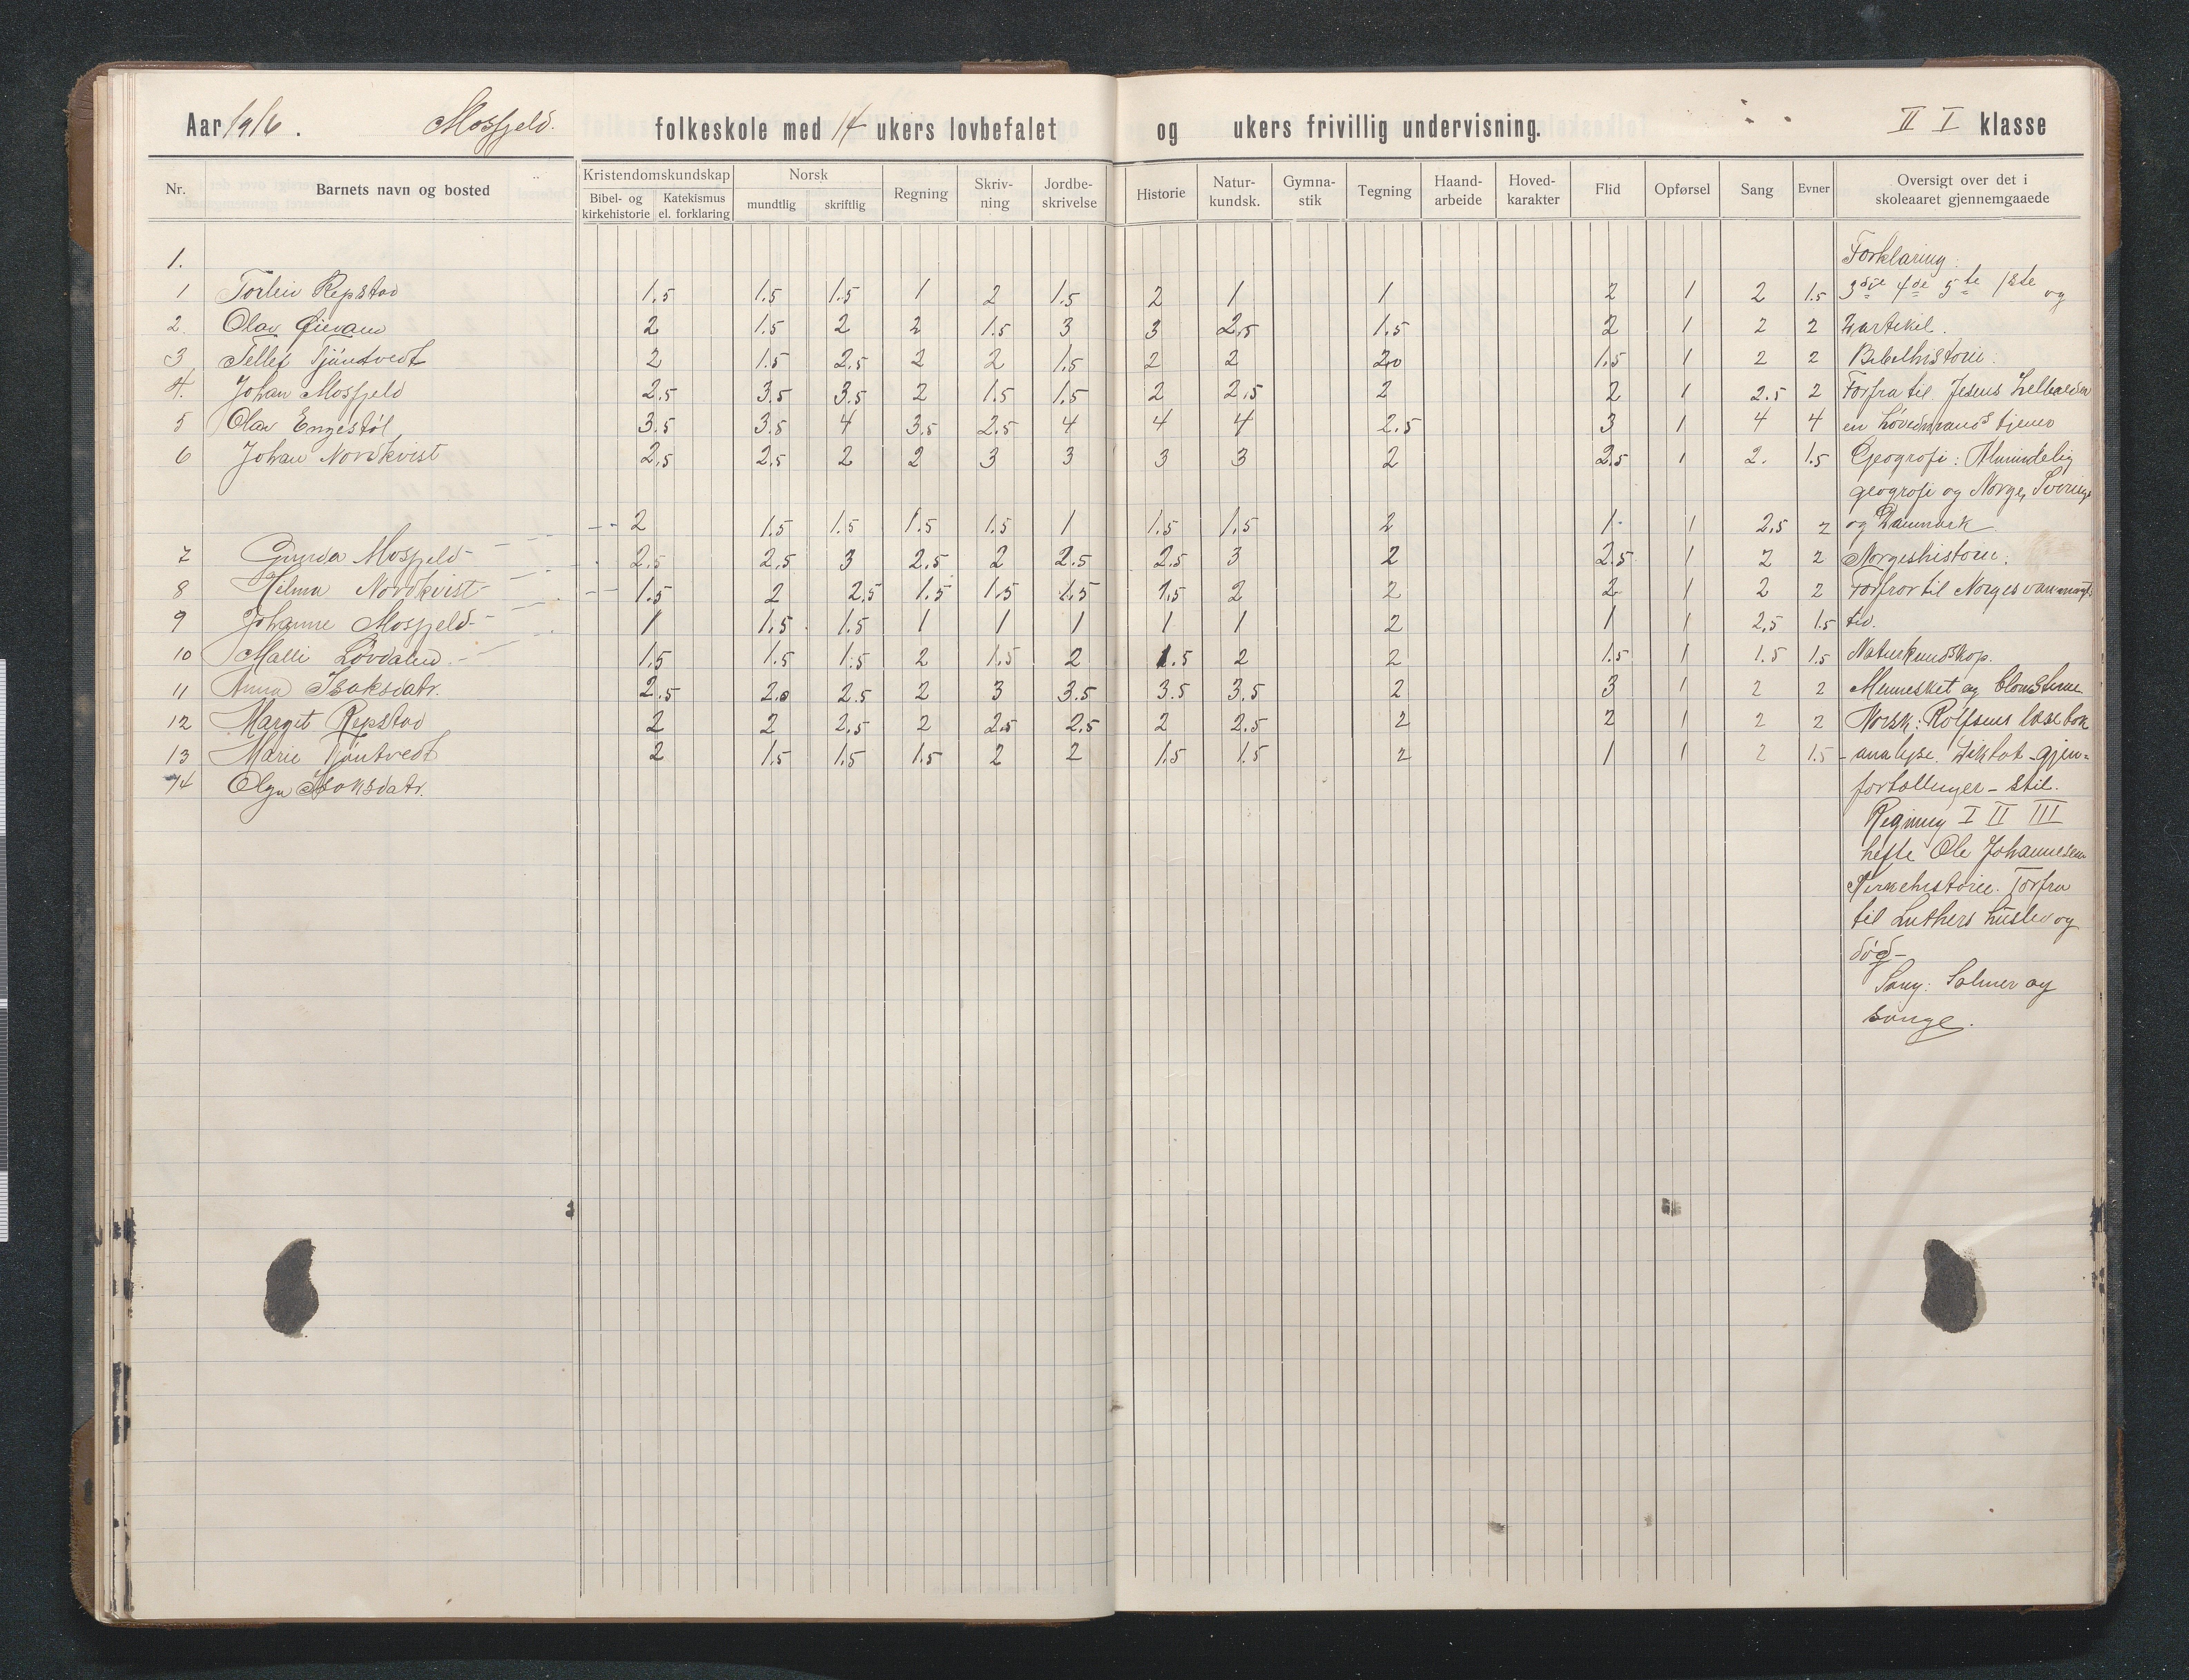 Aar 1916. Mosfjeld. folkeskole med 14 ukers lovbefalet og ukers frivillig undervisning. II I klasse
Nr. Barnets navn og bosted Kristendomskundskap Bibel- og kirkehistorie Katekismus el. forklaring Norsk mundtlig skriftlig Regning Skriv-ning Jordbe-skrivelse Historie Natur-kundsk. Gymna-stik Tegning Haand-arbeide Hoved-karakter Flid Opførsel Sang Evner Oversigt over det i skoleaaret gjennemgaaede
1. Forklaring:
1 Torleiv Repstad 1.5 1.5 1.5 1 2 1.5 2 1 1 2 1 2 1.5 3die 4de 5te 1ste og
2. Olav 2 1.5 2 2 1.5 3 3 2,5 1.5 2 1 2 2 2 artikel.
3 Tellef Tjøntvedt 2 1.5 2.5 2 2 1.5 2 2 2.0 1.5 1 2 2 Bibelhistorie.
4. Johan Mosfjeld 2.5 3.5 3.5 2 1.5 1.5 2 2,5 2 2 1 2.5 2 Forfra til Jesus helbreder
5 Olav Engestøl 3.5 3.5 4 3.5 2.5 4 4 4 2.5 3 1 4 4 en høvedmands tjener
6 Johan Nordkvist 2,5 2,5 2 2 3 3 3 3 2 2,5 1 2. 1.5 Geografi: Almindelig
geografi og Norge, Sverige
2 1.5 1.5 1.5 1.5 1 1.5 1.5 2 1 1 2,5 2 og Danmark
7 Gunda Mosfjeld 2.5 2,5 3 2,5 2 2.5 2.5 3 2 2.5 1 2 2 Norgeshistorie:
8 Hilma Nordkvist 1.5 2 2.5 1.5 1.5 1.5 1,5 2 2 2 1 2 2 Forfra til Norges vanmagts
9 Johanne Mosfjeld 1 1.5 1.5 1 1 1 1 1 2 1 1 2,5 1.5 tid.
10 Malli Løvdalen 1.5 1.5 1.5 2 1.5 2 1.5 2 2 1.5 1 1.5 1.5 Naturkundskap.
11 Anna Isaksdatr. 2,5 2.0 2.5 2 3 3.5 3.5 3,5 2 3 1 2 2 Mennesket og blomsterne
12 Margit Repstad 2 2 2,5 2 2.5 2,5 2 2.5 2 2 1 2 2 Norsk: Rolfsens læsebok
13 Marie Tjøntvedt 2 1.5 1.5 1.5 2 2 1.5 1.5 2 1 1 2 1.5 - analyse. Diktat - gjen-
14 Olga Isaksdatr. fortællinger - stil.
Regning I II III
hefte Ole Johannesen
Kirkehistorie. Forfra
til Luthers husliv og
død -
Sang: Salmer og
sange.